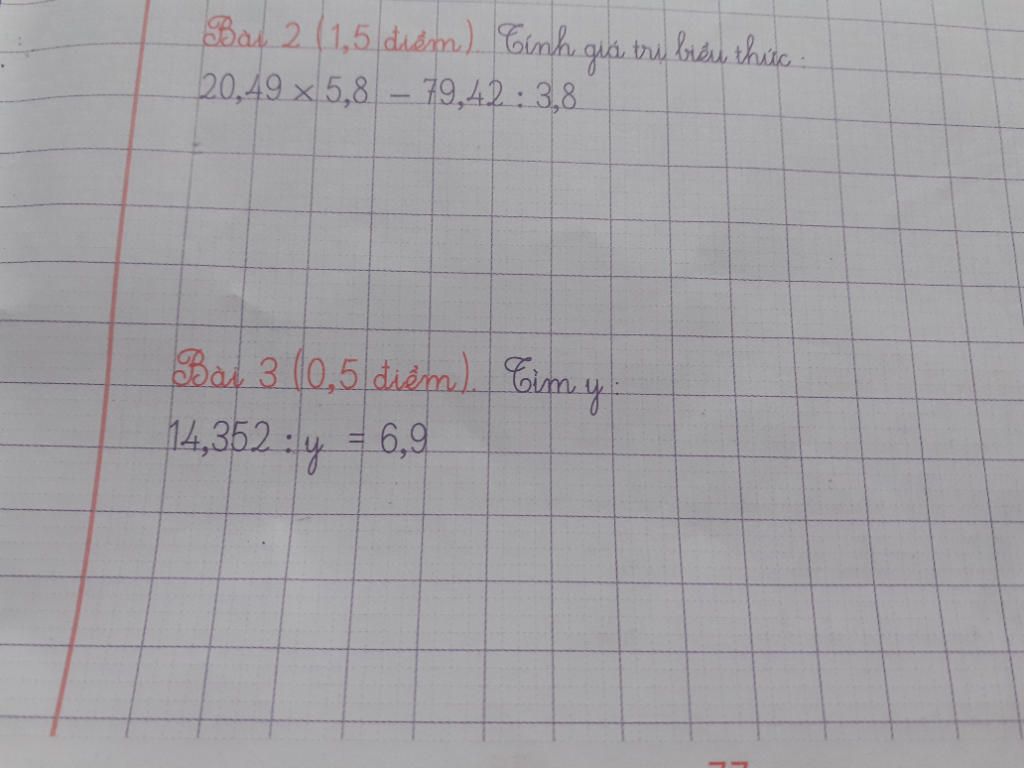 Bài 2 (1,5 điểm). Tính giá trị biểu thức:
20,49 × 5,8 – 79,42 : 3,8
Bài 3 (0,5 điểm). Tìm y:
14,352 : y = 6,9